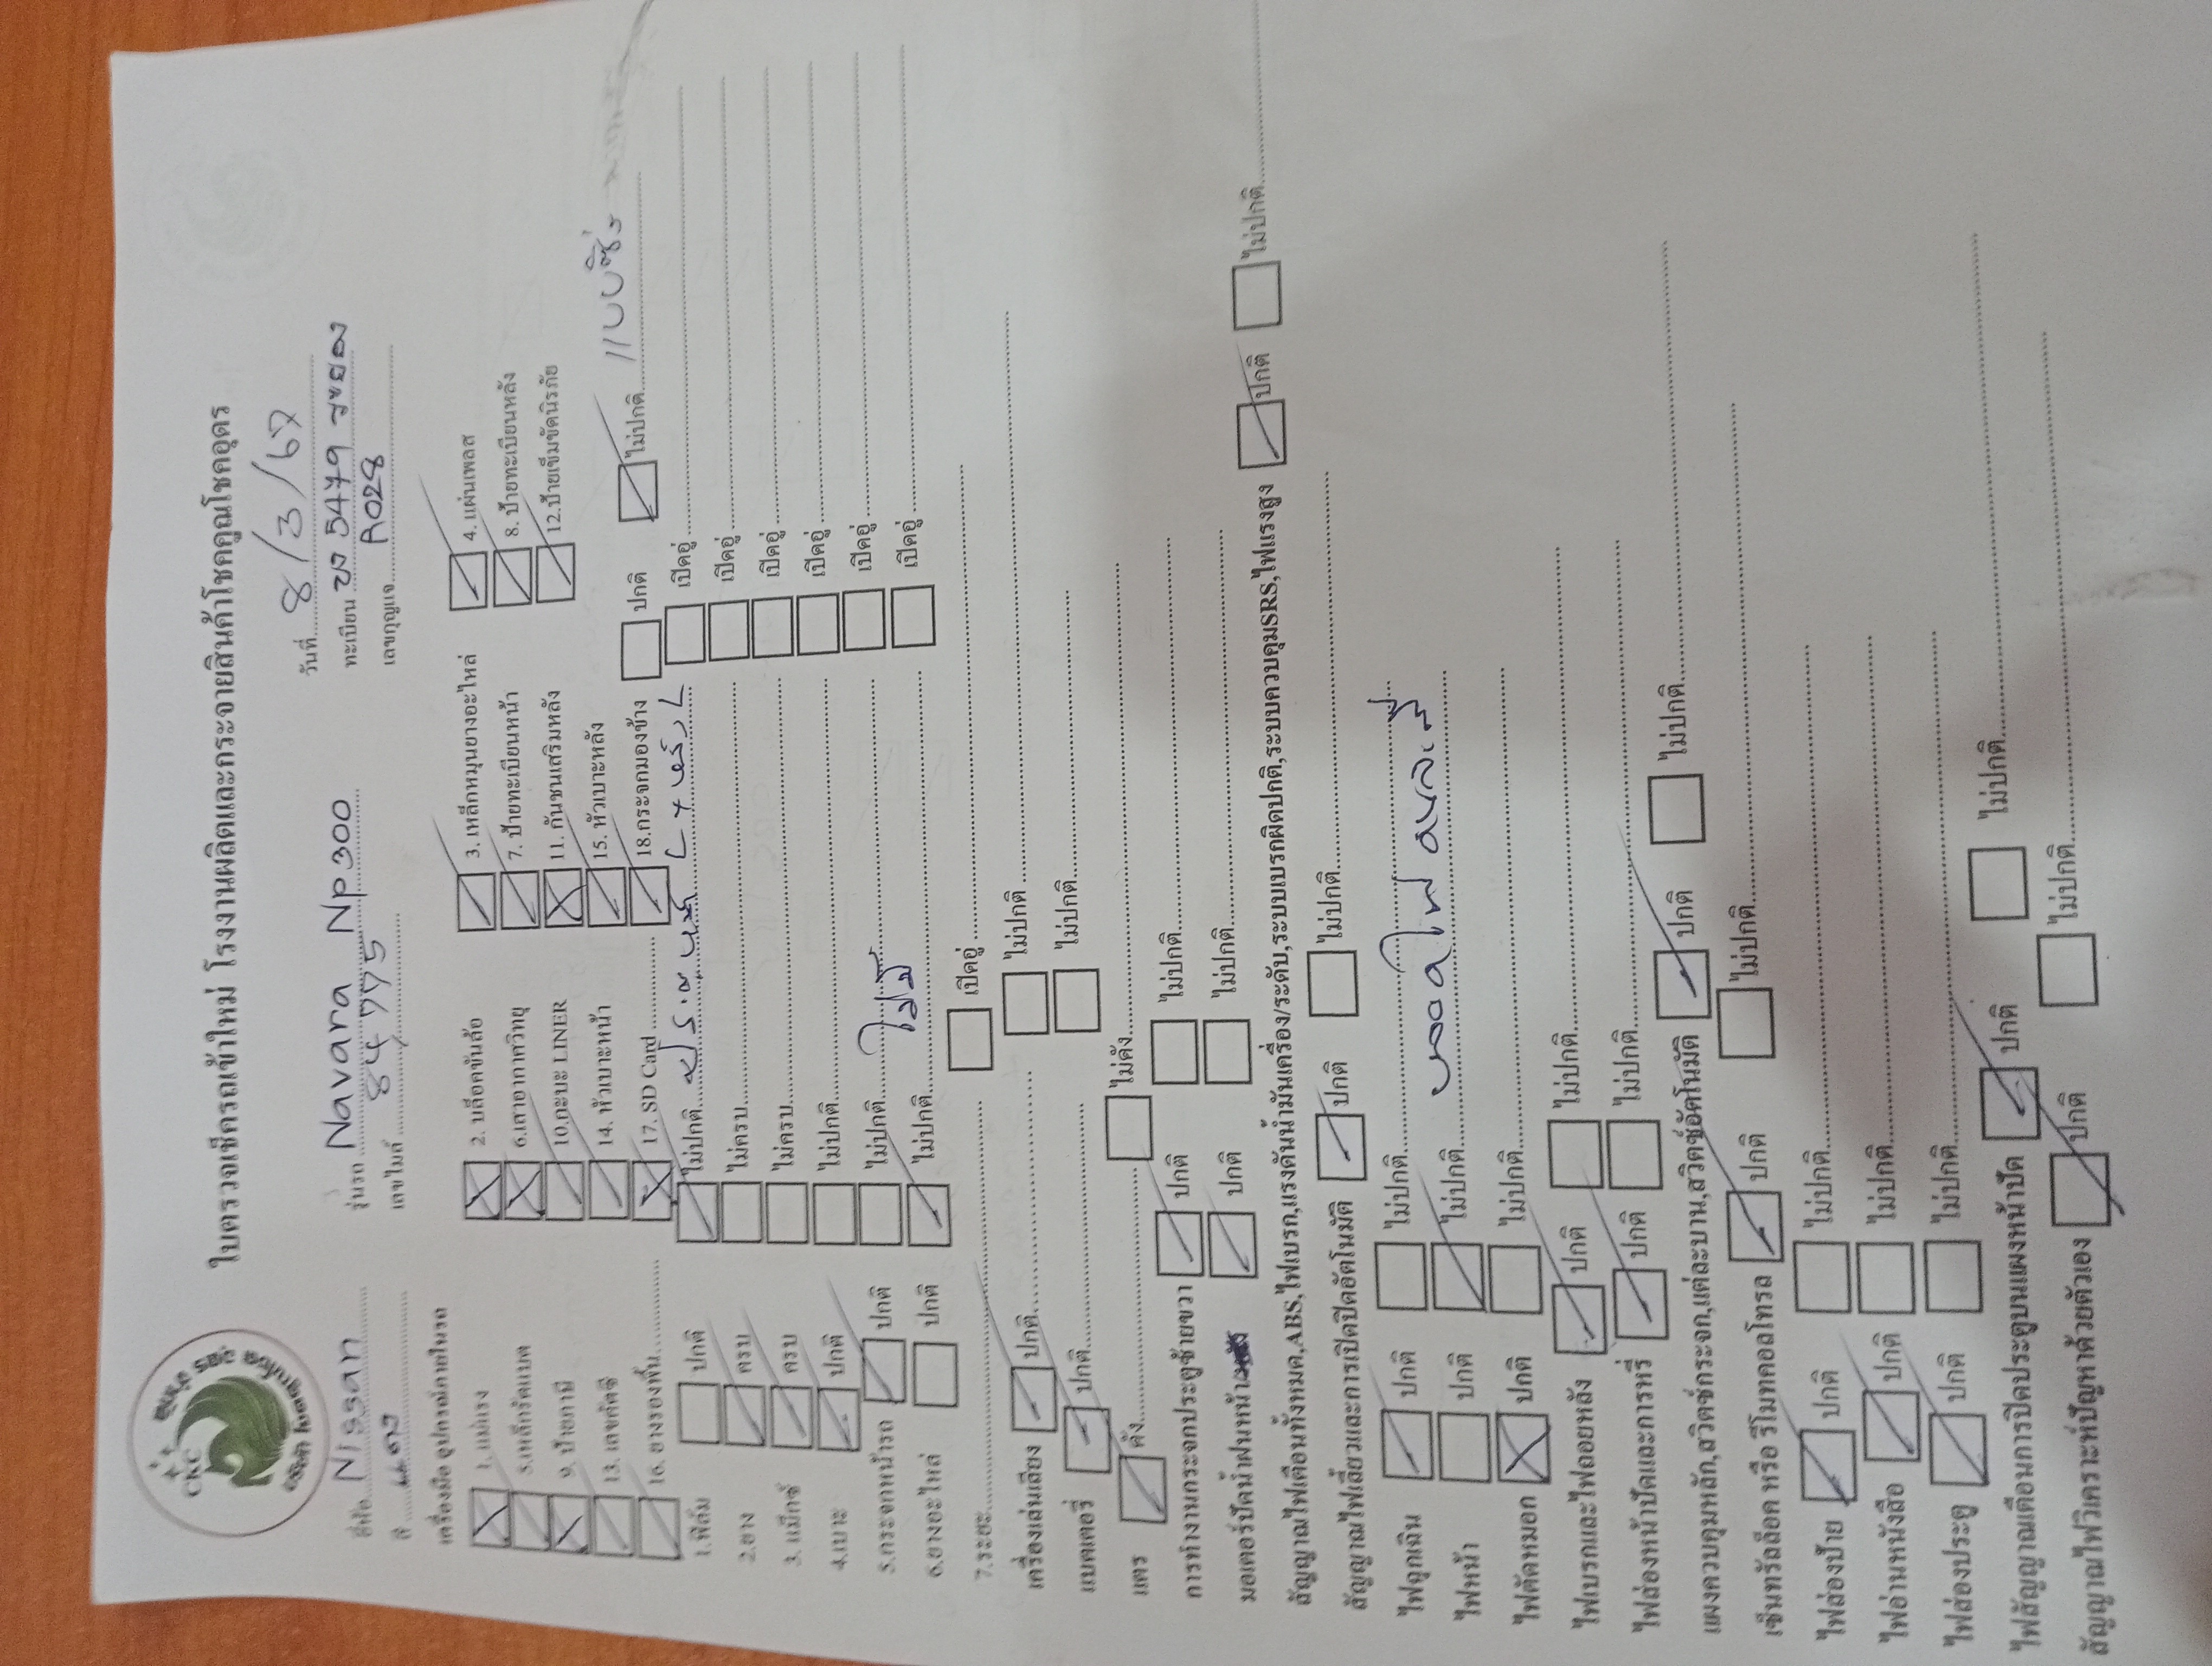 CKC
ใบตรวจเช็ครถเข้าใหม่ โรงงานผลิตและกระจายสินค้าโชคคูณโชคอุดร
วันที่ 8/3/67
ยี่ห้อ Nissan รุ่นรถ Navara Np300 ทะเบียน 5479 ระยอง
สี แดง เลขไมล์ 84775 เลขกุญแจ R028
เครื่องมือ อุปกรณ์ภายในรถ
1. แม่แรง 2. บล็อคขันล้อ 3. เหล็กหมุนยางอะไหล่ 4. แผ่นเพลส
5.เหล็กรัดแบต 6.เสาอากาศวิทยุ 7. ป้ายทะเบียนหน้า 8. ป้ายทะเบียนหลัง
9. ป้ายภาษี 10.กะบะ LINER 11. กันชนเสริมหลัง 12.ป้ายเข็มขัดนิรภัย
13. เลขคัสซี 14. หัวเบาะหน้า 15. หัวเบาะหลัง
16. ยางรองพื้น 17. SD Card 18.กระจกมองข้าง ปกติ ไม่ปกติ
1.ฟิล์ม ปกติ ไม่ปกติ เปิดอู่
2.ยาง ครบ ไม่ครบ เปิดอู่
3. แม็กซ์ ครบ ไม่ครบ เปิดอู่
4.เบาะ ปกติ ไม่ปกติ เปิดอู่
5.กระจกหน้ารถ ปกติ ไม่ปกติ เปิดอู่
6.ยางอะไหล่ ปกติ ไม่ปกติ ไม่มี เปิดอู่
7.ระยะ เปิดอู่
เครื่องเล่นเสียง ปกติ ไม่ปกติ
แบตเตอรี่ ปกติ ไม่ปกติ
แตร ดัง ไม่ดัง
การทำงานกระจกประตูซ้ายขวา ปกติ ไม่ปกติ
มอเตอร์ปัดน้ำฝนหน้า ปกติ ไม่ปกติ
สัญญาณไฟเตือนทั้งหมด,ABS,ไฟเบรก,แรงดันน้ำมันเครื่อง/ระดับ,ระบบเบรกผิดปกติ,ระบบควบคุมSRS,ไฟแรงสูง ปกติ ไม่ปกติ
สัญญาณไฟเลี้ยวและการเปิดปิดอัตโนมัติ ปกติ ไม่ปกติ
ไฟฉุกเฉิน ปกติ ไม่ปกติ
ไฟหน้า ปกติ ไม่ปกติ
ไฟตัดหมอก ปกติ ไม่ปกติ
ไฟเบรกและไฟถอยหลัง ปกติ ไม่ปกติ
ไฟส่องหน้าปัดและการหรี่ ปกติ ไม่ปกติ
แผงควบคุมหลัก,สวิตซ์กระจก,แต่ละบาน,สวิตซ์อัตโนมัติ ปกติ ไม่ปกติ
เซ็นทรัลล็อค หรือ รีโมทคอลโทรล ปกติ ไม่ปกติ
ไฟส่องป้าย ปกติ ไม่ปกติ
ไฟอ่านหนังสือ ปกติ ไม่ปกติ
ไฟส่องประตู ปกติ ไม่ปกติ
ไฟสัญญาณเตือนการปิดประตูบนแผงหน้าปัด ปกติ ไม่ปกติ
สัญญาณไฟวิเคราะห์ปัญหาด้วยตัวเอง ปกติ ไม่ปกติ